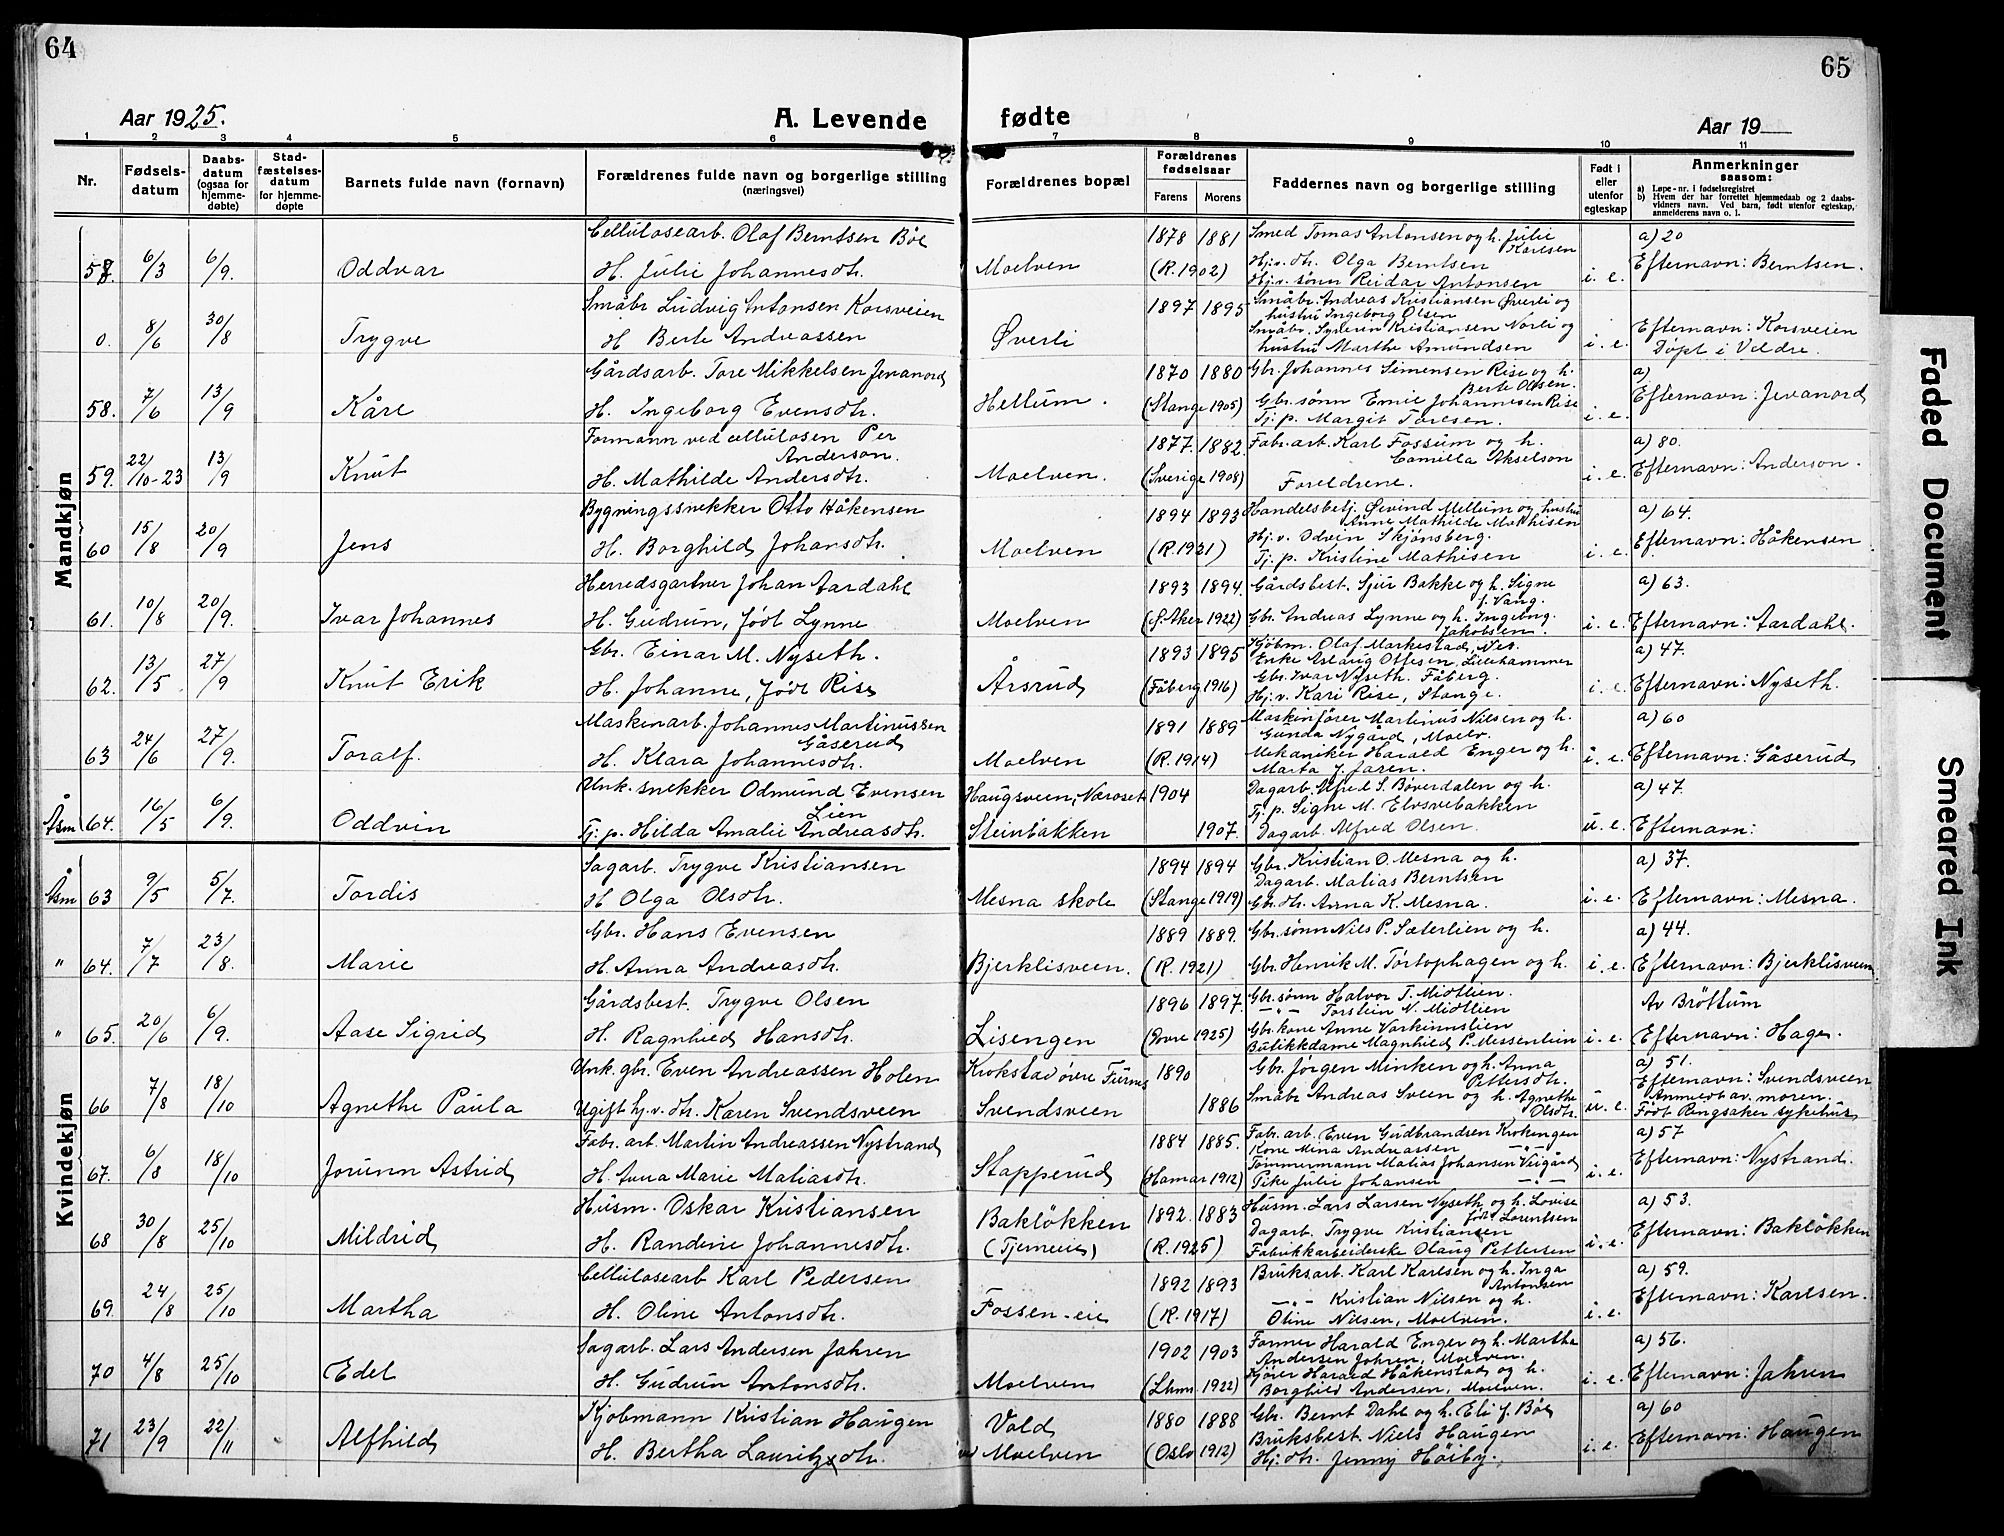 64
65
Aar 1925.
A. Levende fødte
Aar 19
1 2 3 4 5 6 7 8 9 10 11
Nr.
Fødsels-datum
Daabs-datum (ogsaa for hjemme-døbte)
Stad-fæstelses-datum for hjemme-døpte
Barnets fulde navn (fornavn)
Forældrenes fulde navn og borgerlige stilling (næringsvei)
Forældrenes bopæl
Forældrenes fødselsaar
Farens Morens
Faddernes navn og borgerlige stilling
Født i eller utenfor egteskap
Anmerkninger saasom:
a) Løpe-nr. i fødselsregistret
b) Hvem der har forrettet hjemmedaab og 2 daabs-vidners navn. Ved barn, født utenfor egteskap, anmelderens navn o. l.
Mandkjøn
Cellulosearb. Olaf Berntsen Böe 1878 1881 Smed Tomas Antonsen og h. Julie Karlsen a) 20
57. 6/3 6/9. Oddvar H. Julie Johannesdtr. Moelven (R. 1902) Hj.v. dtr. Olga Berntsen i. e. Efternavn: Berntsen.
Hj.v. sønn Reidar Antonsen
Småbr. Ludvig Antonsen Korsveien 1897 1895 Småbr. Andreas Kristiansen Øverli og hustru Ingeborg Olsen
0. 8/6 30/8 Trygve H Berte Andreassen Øverli Småbr. Syverin Kristiansen Norli og hustru Marthe Amundsen i. e. Efternavn: Korsveien
Døpt i Veldre.
Gårdsarb. Tore Mikkelsen Jevanord 1870 1880 Gbr. Johannes Simensen Rise og h. Berte Olsen. a)
58. 7/6 13/9 Kåre H. Ingeborg Evensdtr. Hellum. (Stange 1905) Gbr. sønn Emil Johannesen Rise i. e. Efternavn: Jevanord
Tj. p. Margit Toresen.
Formann ved cellulosen Per Anderson. 1877. 1882. Fabr. arb. Karl Fossum og h. Camilla Akselson a) 80.
59. 22/10-23 13/9 Knut H. Mathilde Andersdtr. Moelven. (Sverige 1908) Foreldrene. i. e. Efternavn: Anderson.
Bygningssnekker Otto Håkensen 1894 1893 Handelsbetj. Øivind Mellum og hustru Anne Mathilde Mathisen a) 64.
60 15/8 20/9 Jens H. Borghild Johansdtr. Moelven (R. 1921) Hj. v. Odvin Skjønsberg. i. e. Efternavn: Håkenson
Tj. p. Kristine Mathisen
Herredsgartner Johan Aardahl 1893 1894. Gårdsbest. Sjur Bakke og h. Signe f. Vang. a) 63.
61. 10/8 20/9. Ivar Johannes H. Gudrun, født Lynne Moelven (S. Aker 1922) Gbr. Andreas Lynne og h. Ingeborg. Jakobsen. i. e. Efternavn: Aardahl.
Gbr. Einar M. Nyseth. 1893 1895 Kjøbm. Olaf Markestad, Nes. a) 47.
Enke Aslaug Ottesen, Lillehammer
62. 13/5 27/9 Knut Erik H. Johanne, født Rise Årsrud (Fåberg 1916) Gbr. Ivar Nyseth. Fåberg. i. e. Efternavn: Nyseth.
Hj. v. Kari Rise, Stange.
Maskinarb. Johannes Martinussen Gåserud 1891 1889 Maskinfører Martinus Nilsen og h. Gunda Nygård, Moelv. a) 60
63 24/6 27/9. Toralf. H. Klara Johannesdtr. Moelven (R. 1914) Mekaniker Harald Enger og h. Marta f. Jaren. i. e. Efternavn: Gåserud
Unk. snekker Odmund Evensen Lien Haugsveen, Næroset 1904 Dagarb. Alfred S. Böverdalen og h. a) 47.
Tj. p. Signe M. Elvsvebakken
Åsm 64. 16/5 6/9. Oddvin Tj. p. Hilda Amalie Andreasdtr. Steinbakken 1907. Dagarb. Alfred Olsen. u. e. Efternavn:
Kvindekjøn
Sagarb. Trygve Kristiansen 1894 1894 Gbr. Kristian O. Mesna og h. a) 37.
Dagarb. Matias Berntsen
Åsm 63 9/5 5/7. Tordis H Olga Olsdtr. Mesna skole (Stange 1919) Gbr. dtr. Anna K. Mesna. i. e. Efternavn: Mesna.
Gbr. Hans Evensen 1889 1889. Gbr. sønn Nils P. Sæterlien og h. a) 44.
" 64. 7/7 23/8. Marie H. Anna Andreasdtr. Bjerklisveen. (R. 1921) Gbr. Henrik M. Tortophagen og h. i. e. Efternavn: Bjerklisveen
Gårdsbest. Trygve Olsen 1896 1897. Gbr. sønn Halvor T. Midtlien. Av Bröttum
—"— Torstein N. Midtlien
" 65. 20/6 6/9. Aase Sigrid H. Ragnhild Hansdtr. Lisengen (Dovre 1925) Gbr. kone Anne Varkinnslien i. e. Efternavn: Hage.
Butikkdame Magnhild P. Messenlien
Unk. gbr. Even Andreassen Holen Krokstad øvre Furnes 1890 Gbr. Jörgen Minken og h. Anna Pettersdtr. a) 51.
Efternavn: Svendsveen
66 7/8 18/10 Agnethe Paula Ugift hj. v. dtr. Karen Svendsveen Svendsveen 1886 Småbr. Andreas Sveen og h. Agnethe Olsdtr. u. e. Anmeldt av moren.
Født Ringsaker sykehus
Fabr. arb. Martin Andreassen Nystrand 1884 1885. Fabr. arb. Even Gudbrandsen Krokengen a) 57
Kone Mina Andreassen —"—
67. 6/8 18/10 Jorunn Astrid H. Anna Marie Matiasdtr. Stapperud (Hamar 1912) Tømmermann Matias Johansen Veigård i. e. Efternavn: Nystrand.
Pike Julie Johansen —"—
Husm. Oskar Kristiansen Bakløkken 1892. 1883 Husm. Lars Larsen Nyseth og h. Lovise født Lorentsen a) 53.
Dagarb. Trygve Kristiansen
68 30/8 25/10 Mildrid H. Randine Johannesdtr. (Tjerneie) (R. 1925) Fabrikkarbeiderske Olaug Pettersen i. e. Efternavn: Bakløkken
Cellulosearb Karl Pedersen 1892 1893 Bruksarb. Karl Karlsen og h. Inga Antonsen a) 59.
69. 24/8 25/10 Martha H. Oline Antonsdtr. Fossen-eie (R. 1917) —"— Kristian Nilsen og h. Oline Nilsen, Moelven. i. e. Efternavn: Karlsen.
Sagarb. Lars Andersen Jahren 1902 1903 Former Harald Enger og h. Martha Andersen Jahren, Moelven. a) 56.
70 4/8 25/10 Edel H. Gudrun Antonsdtr. Moelven (Lhmr. 1922) Kjører Harald Håkenstad og h. Borghild Andersen, Moelven. i. e. Efternavn: Jahren
Kjøbmann Kristian Haugen Vold 1880 1888 Gbr. Bernt Dahl og h. Eli f. Böe a) 60
71 23/9 22/11 Alfhild H. Bertha Lauritzdtr. ved Moelven (Oslo 1912) Bruksbest. Niels Haugen i. e. Efternavn: Haugen
Hj. dtr. Jenny Höiby.
Faded Document
Smeared Ink